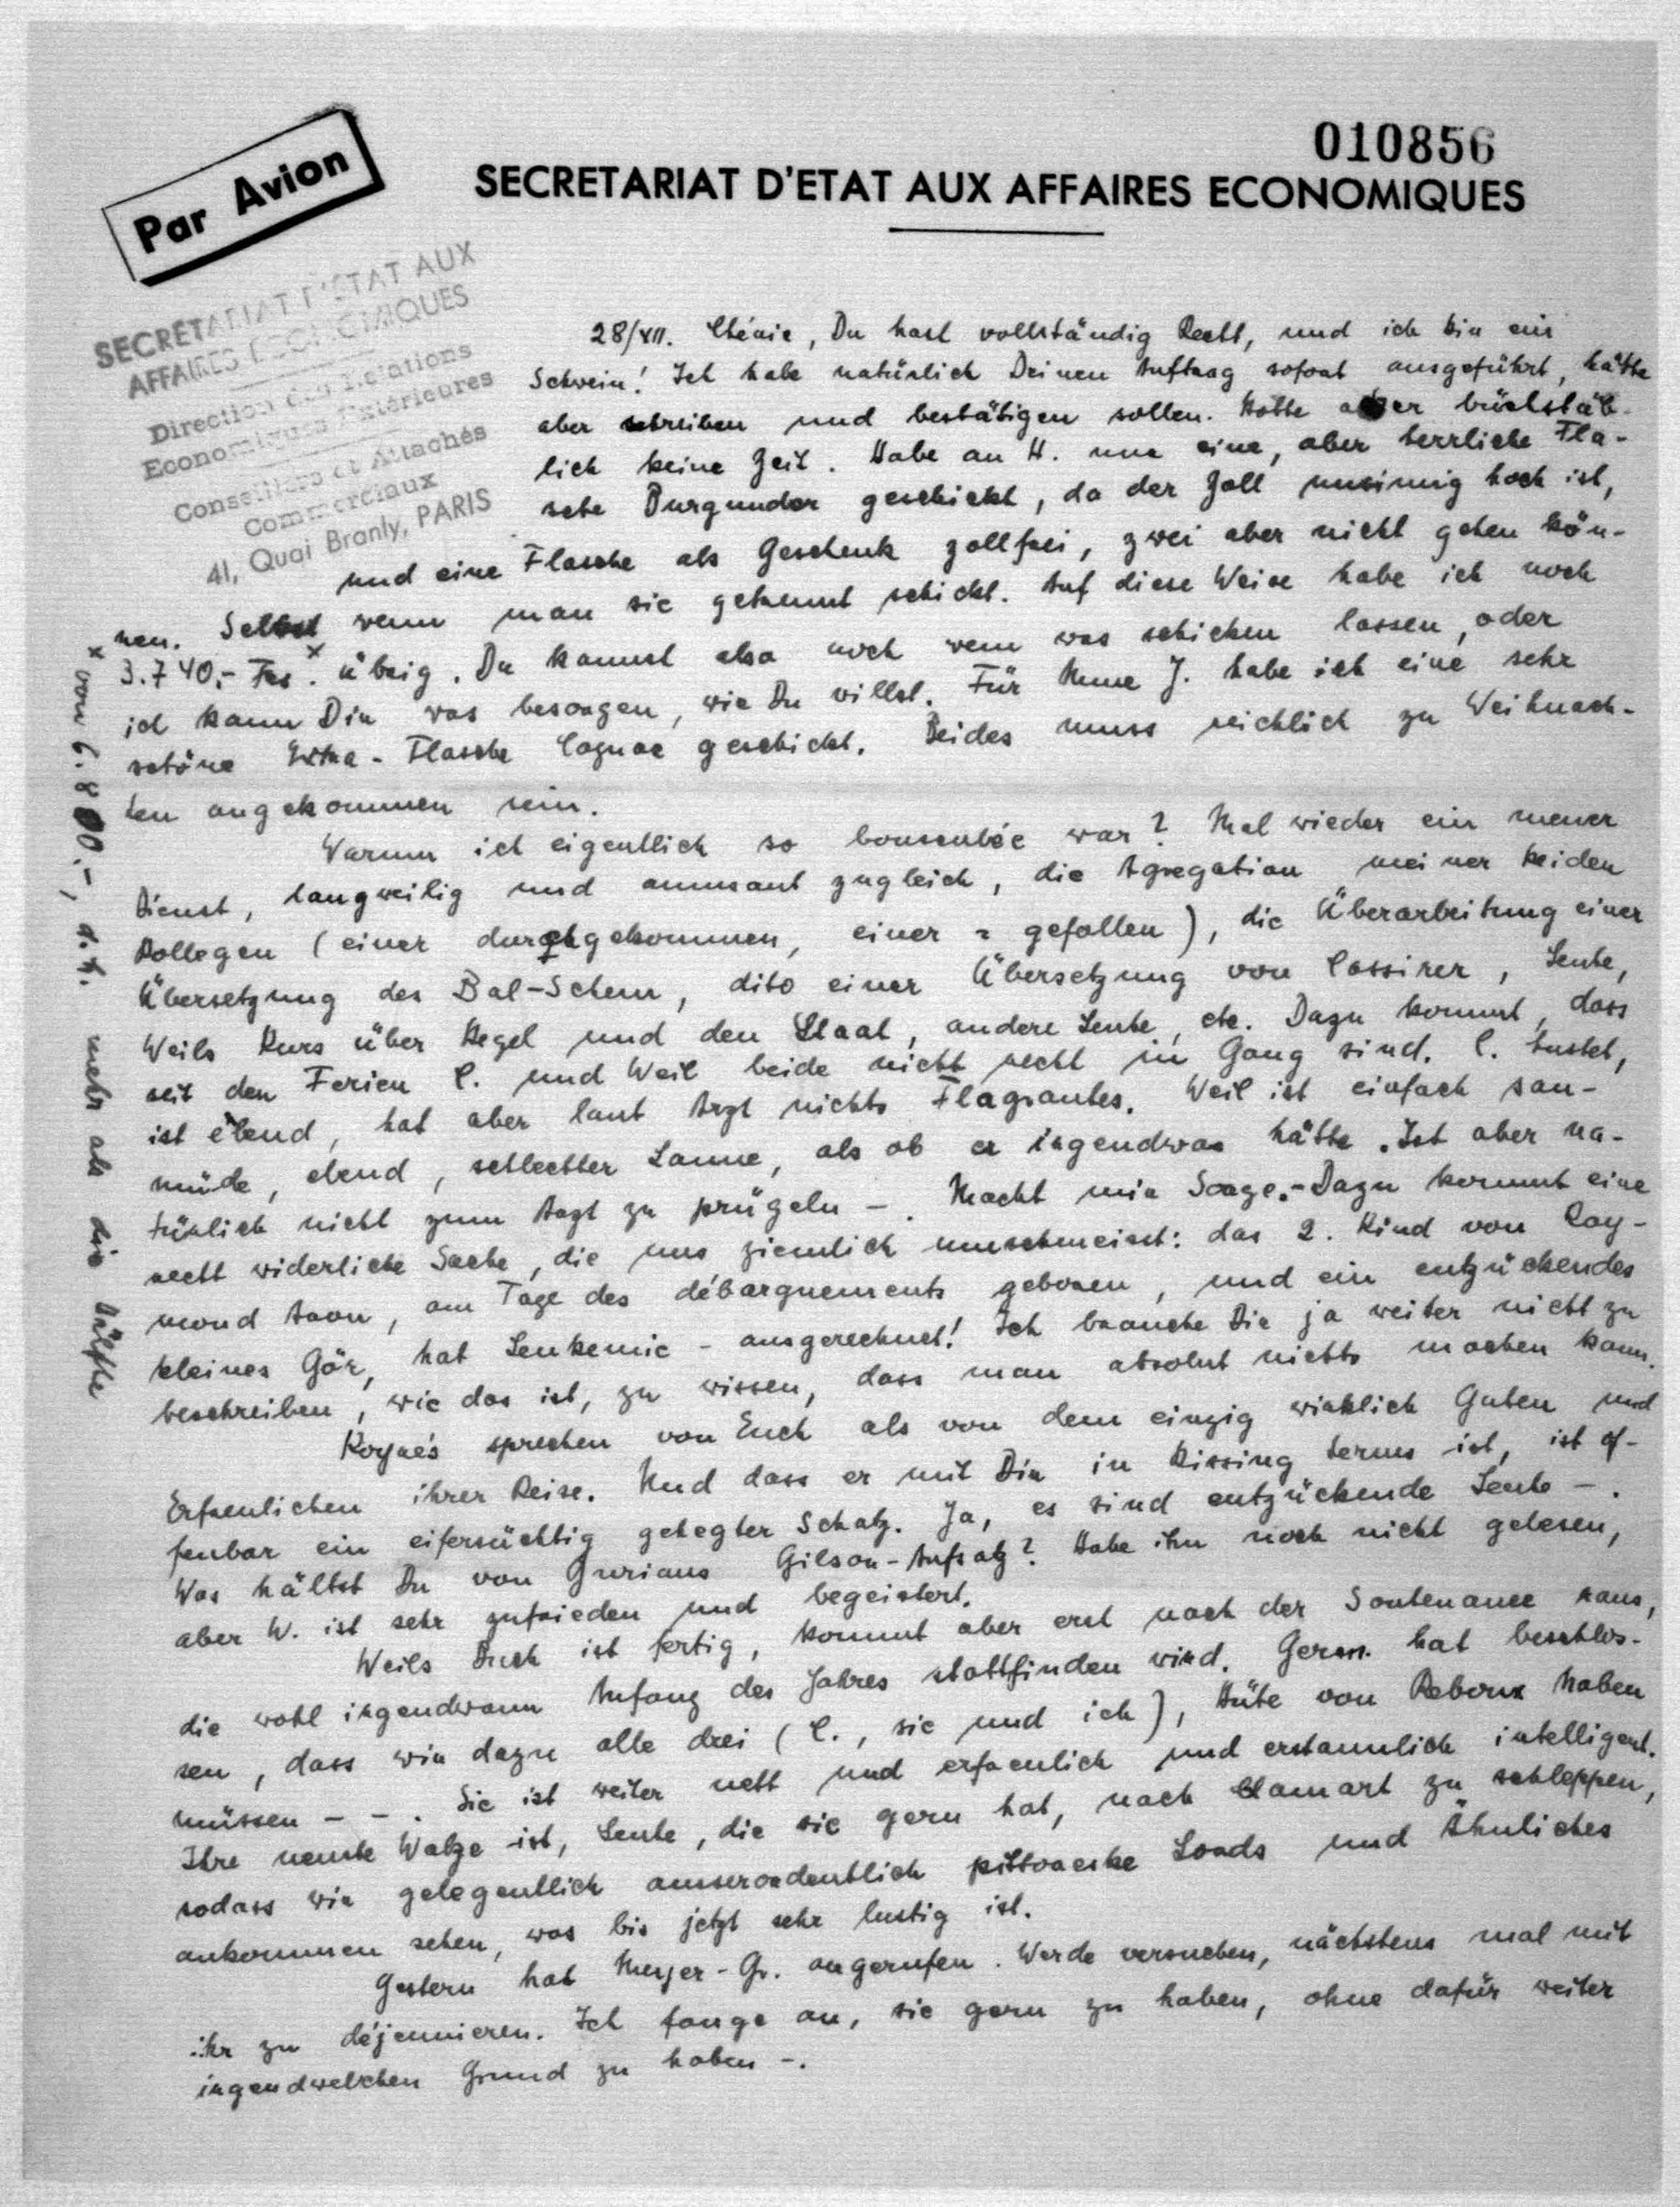 010856
Par Avion
SECRETARIAT D'ETAT AUX AFFAIRES ECONOMIQUES
SECRETARIAT D'ETAT AUX
AFFAIRES ECONOMIQUES
Direction des Relations
Economiques Extérieures
Conseillers et Attachés
Commerciaux
41, Quai Branly, PARIS
28/XII. Chérie, Du hast vollständig Recht, und ich bin ein
Schwein! Ich habe natürlich Deinen Auftrag sofort ausgeführt, hätte
aber schreiben und bestätigen sollen. Hatte aber büchstäb-
lich keine Zeit. Habe an H. nur eine, aber herrliche Fla-
sche Burgunder geschickt, da der Zoll unsinnig hoch ist,
und eine Flasche als Geschenk zollfrei, zwei aber nicht gehen kön-
nen. Selbst wenn man sie getrennt schickt. Auf diese Weise habe ich noch
3.740,- Frs.x übrig. Du kannst also noch wem was schicken lassen, oder
ich kann Dir was besorgen, wie Du willst. Für Anne J. habe ich eine sehr
schöne Extra-Flasche Cognac geschickt. Beides muss reichlich zu Weihnach-
ten angekommen sein.
Warum ich eigentlich so bousculée war? Mal wieder ein neuer
Dienst, langweilig und amusant zugleich, die Agregation meiner beiden
Kollegen (einer durchgekommen, einer = gefallen), die Überarbeitung einer
Übersetzung des Bal-Schem, dito einer Übersetzung von Cassirer, Leute,
Weils Kurs über Hegel und den Staat, andere Leute, etc. Dazu kommt, dass
seit den Ferien C. und Weil beide nicht recht in Gang sind. C. hustet,
ist elend, hat aber laut Arzt nichts Flagrantes. Weil ist einfach sau-
müde, elend, schlechter Laune, als ob er irgendwas hätte. Ist aber na-
türlich nicht zum Arzt zu prügeln -. Macht mir Sorge.- Dazu kommt eine
recht widerliche Sache, die uns ziemlich umschmeisst: das 2. Kind von Ray-
mond Aron, am Tage des débarquements geboren, und ein entzückendes
kleines Gör, hat Leukemie - ausgerechnet! Ich brauche Dir ja weiter nicht zu
beschreiben, wie das ist, zu wissen, dass man absolut nichts machen kann.
Koyrés sprechen von Euch als von dem einzig wirklich Guten und
Erfreulichen ihrer Reise. Und dass er mit Dir in kissing terms ist, ist of-
fenbar ein eifersüchtig gehegter Schatz. Ja, es sind entzückende Leute -.
Was hältst Du von Gurians Gilson-Aufsatz? Habe ihn noch nicht gelesen,
aber W. ist sehr zufrieden und begeistert.
Weils Buch ist fertig, kommt aber erst nach der Soutenance raus,
die wohl irgendwann Anfang des Jahres stattfinden wird. Germ. hat beschlos-
sen, dass wir dazu alle drei (C., sie und ich), Hüte von Reboux haben
müssen - -. Sie ist weiter nett und erfreulich und erstaunlich intelligent.
Ihre neuste Walze ist, Leute, die sie gern hat, nach Clamart zu schleppen,
sodass wir gelegentlich ausserordentlich pittoreske Lords und Ähnliches
ankommen sehen, was bis jetzt sehr lustig ist.
Gestern hat Meyer-Gr. angerufen. Werde versuchen, nächstens mal mit
ihr zu déjeunieren. Ich fange an, sie gern zu haben, ohne dafür weiter
irgendwelchen Grund zu haben -.
x von 6.800.-, d.h. mehr als die Hälfte